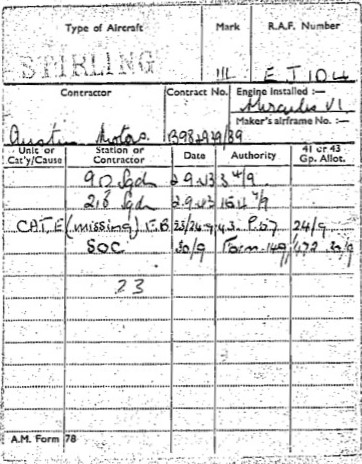 Type of Aircraft Mark R.A.F. Number
STIRLING III EJ104
Contractor Contract No. Engine Installed :—
Hercules VI
Austin Motors. Maker's airframe No. :—
Unit or Cat'y/Cause Station or Contractor Date Authority 41 or 43 Gp. Allot.
90 Sqdn 2.9.43
218 Sqdn 2.9.43
CAT.E (missing) F.B. 23/24.9.43. P.07 24/9
SOC 30/9 Form 30/9
23
A.M. Form 78